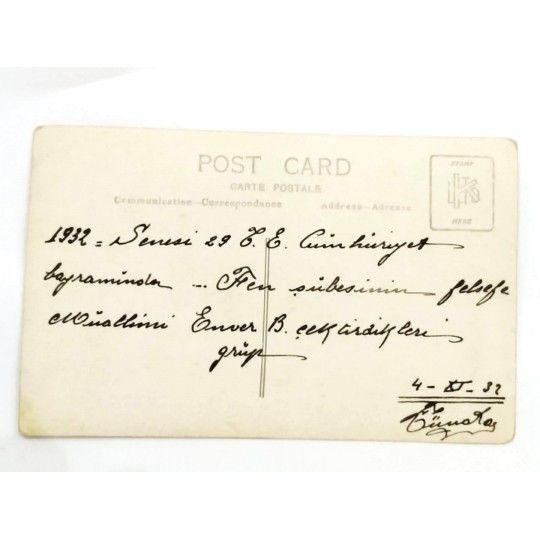 POST CARD
CARTE POSTALE
Communication-Correspondance
Address-Adresse
STAMP
HERE
1932 = Senesi 29 T. E. Cümhüriyet
bayramında ... Fen şübesinin felsefe
Müallimi Enver B. çektirdikleri
grüp
4-XI-32